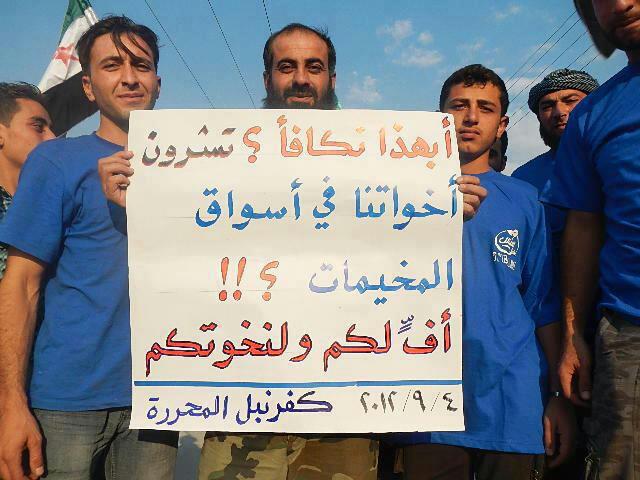 أبهذا نكافأ ؟ تشرون
أخواتنا في أسواق
المخيمات ؟ !!
أفٍّ لكم ولنخوتكم
كفرنبل المحررة ٢٠١٢/٩/٤